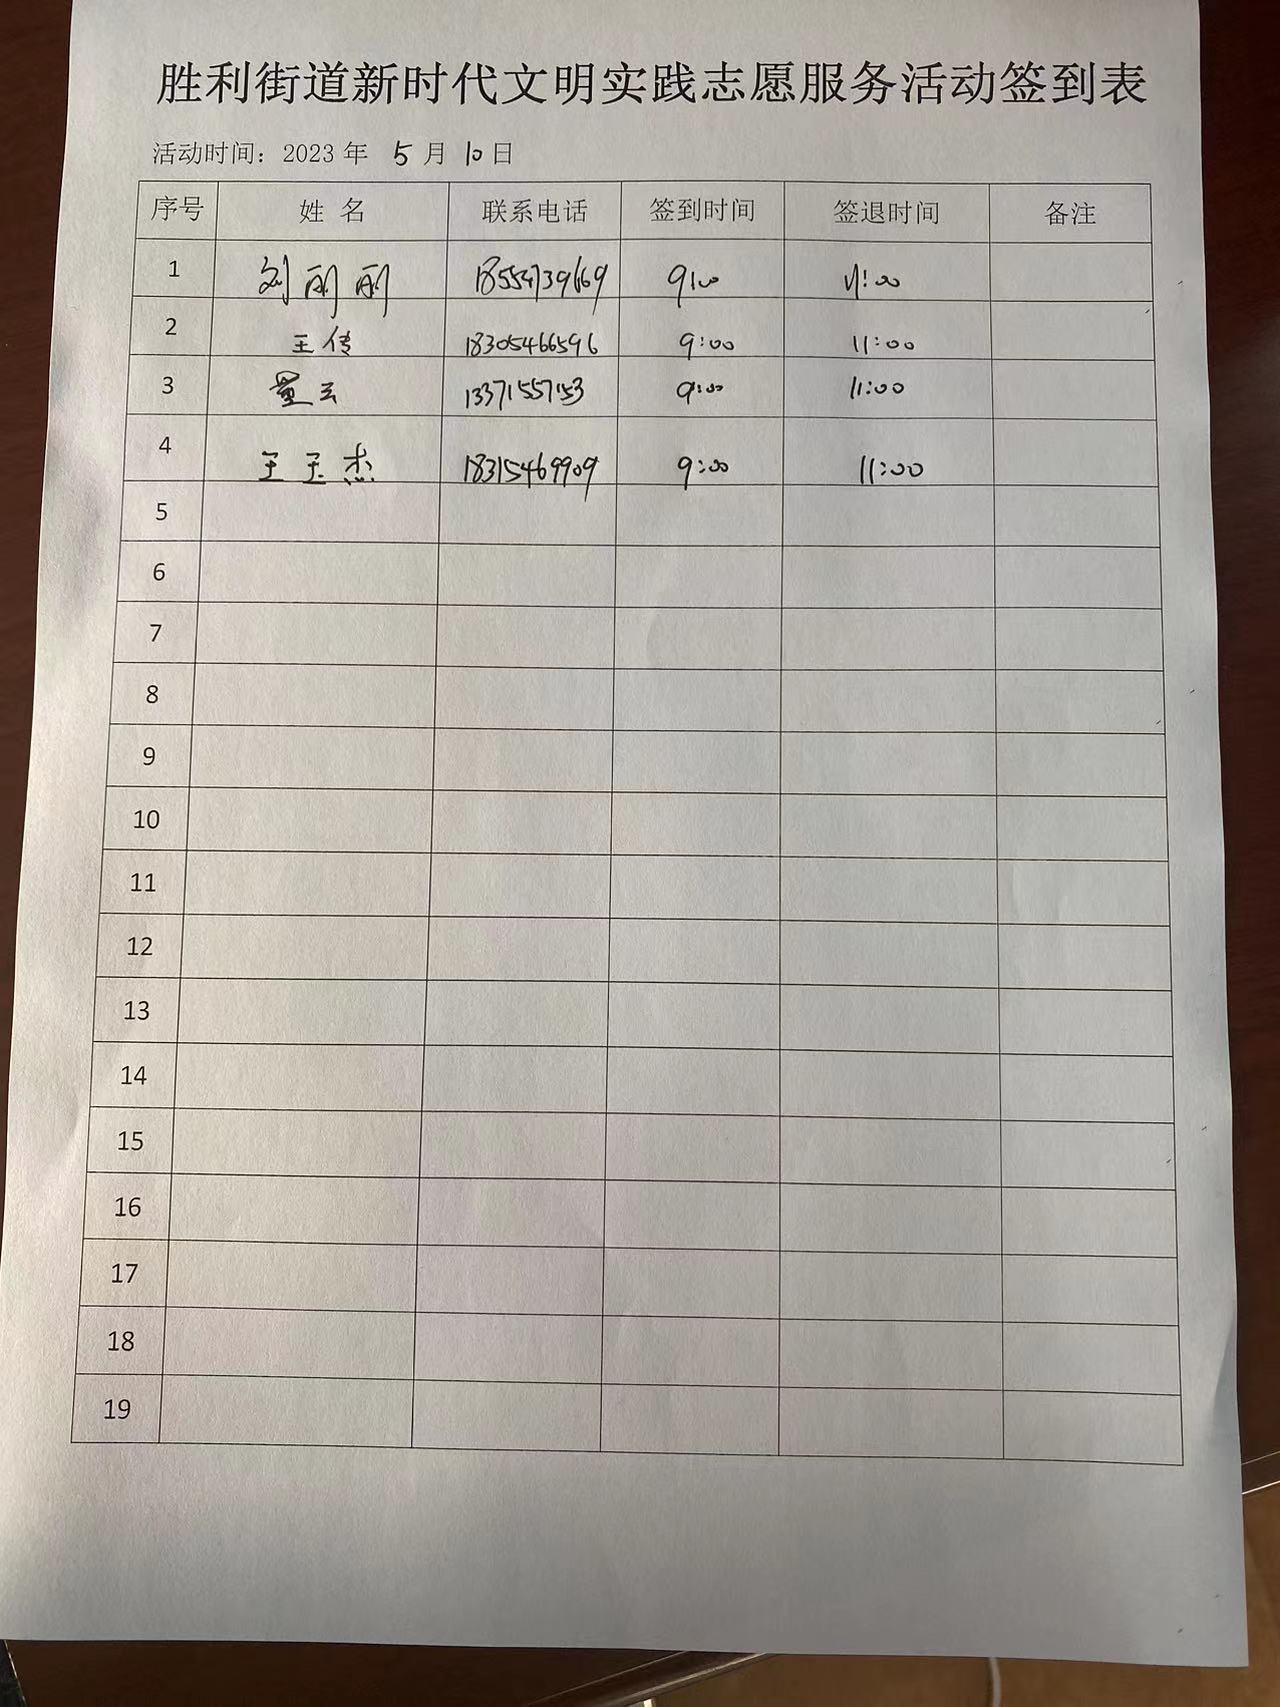 胜利街道新时代文明实践志愿服务活动签到表
活动时间：2023 年 5 月 10 日
序号 姓 名 联系电话 签到时间 签退时间 备注
1 刘丽丽 18554739669 9:00 11:00
2 王传 18305466596 9:00 11:00
3 董云 13371557153 9:00 11:00
4 王玉杰 18315469909 9:00 11:00
5
6
7
8
9
10
11
12
13
14
15
16
17
18
19